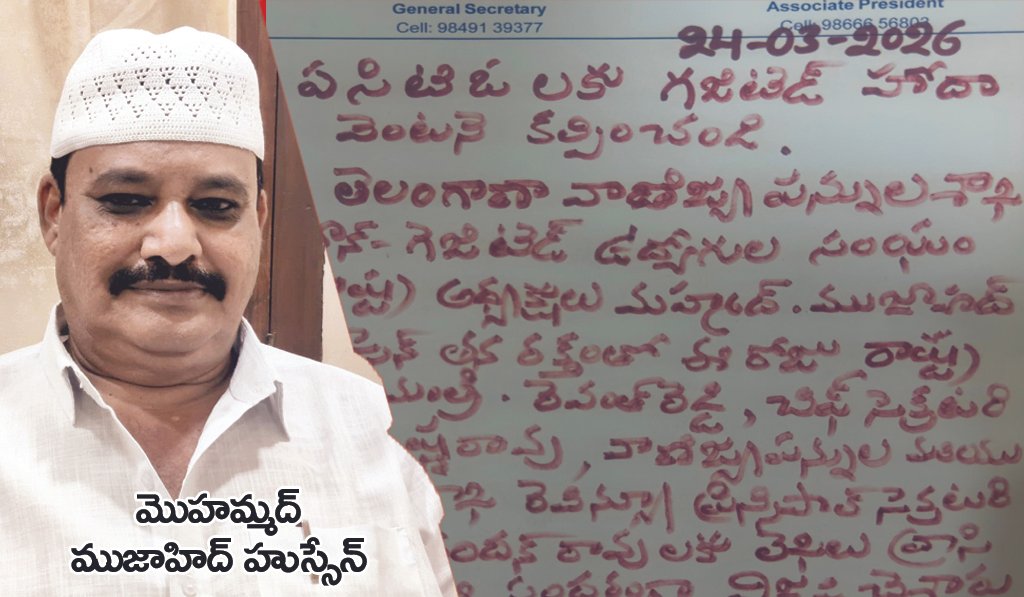 General Secretary
Cell: 98491 39377
Associate President
Cell: 98666 56803
24-03-2026
ప సి టి ఓ లకు గజిటెడ్ హోదా
వెంటనే కల్పించండి.
తెలంగాణా వాణిజ్య పన్నులశాఖ
గెజిటెడ్ ఉద్యోగుల సంఘం
అధ్యక్షులు మహ్మద్. ముజాహిద్
తన రక్తంతో ఈ రోజు రాష్ట్ర
మంత్రి. రేవంత్ రెడ్డి, చీఫ్ సెక్రటరి
రావు, వాణిజ్యపన్నుల మరియు
రెవిన్యూ ప్రిన్సిపాల్ సెక్రటరి
రావు లకు లేఖలు వ్రాసి
మొహమ్మద్
ముజాహిద్ హుస్సేన్